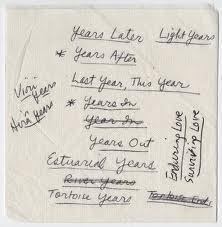 Years Later Light Years
* Years After
Last Year, This Year
* Years In
Year In
Years Out
Estuarial Years
River Years
Tortoise Years Tortoise
Years
Years
Enduring Love
Surviving Love